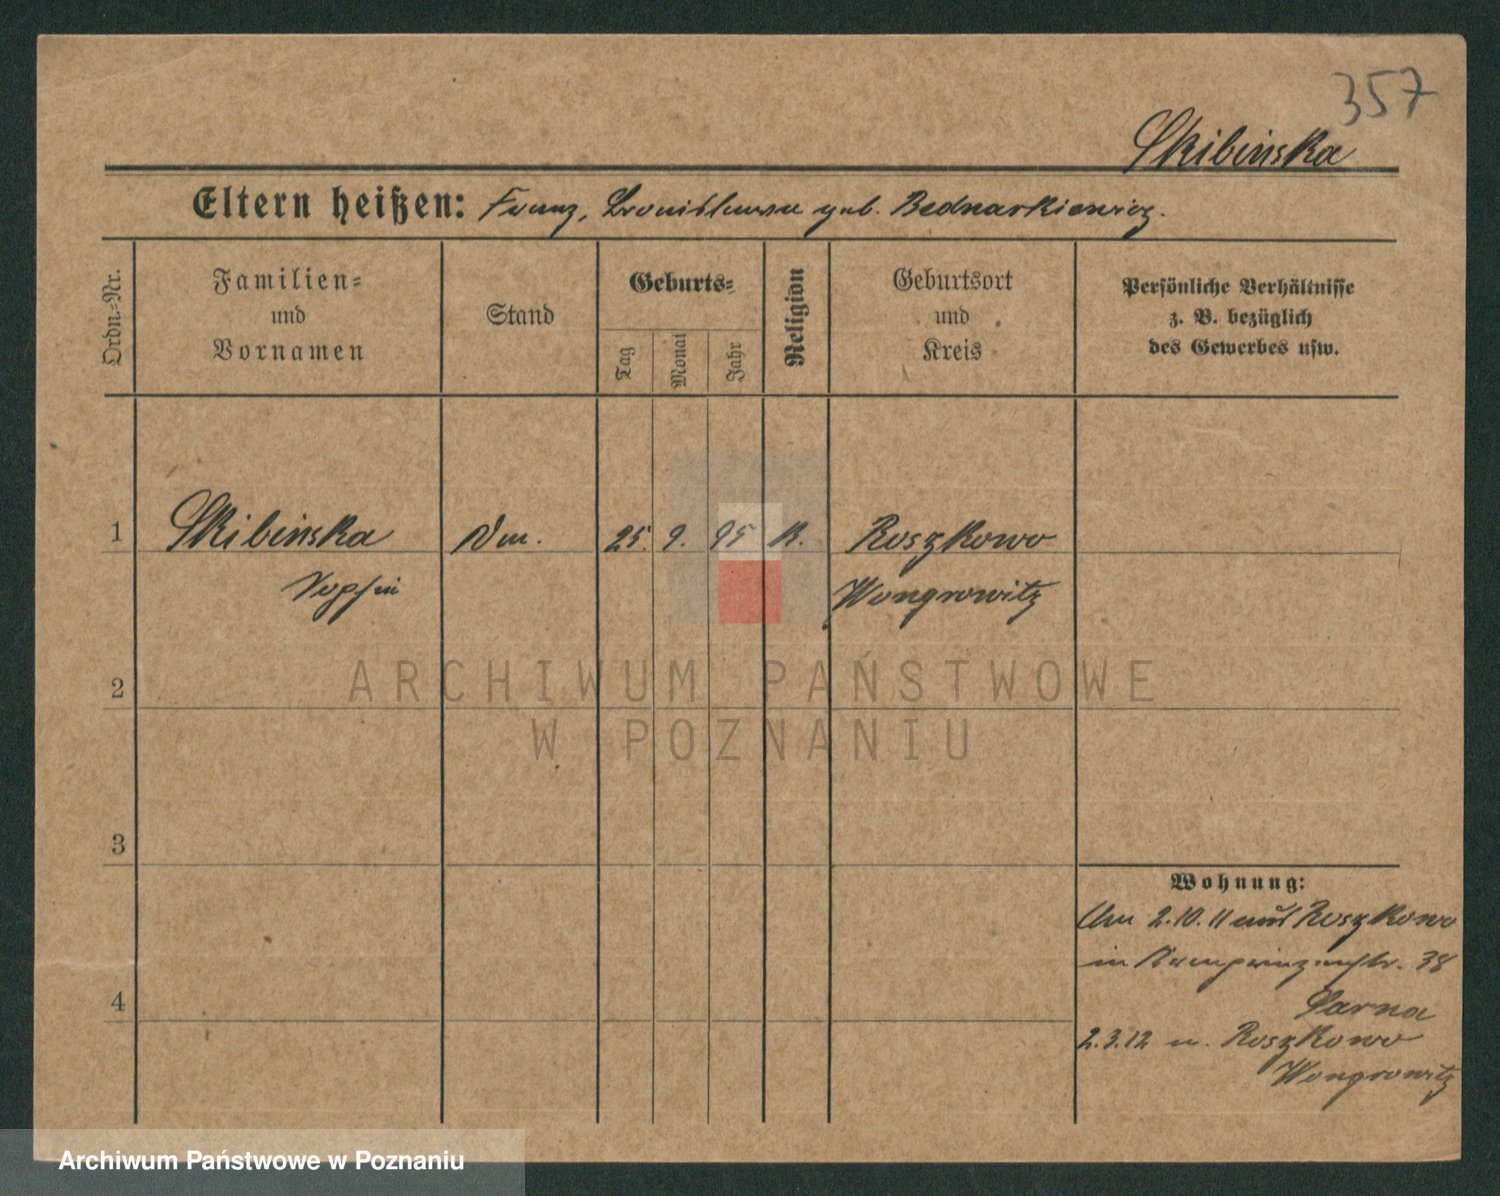 357
Skibinska
Eltern heißen: Franz, Bronislawa geb. Bednarkiewicz.
Ordn.-Nr.
Familien-
und
Vornamen
Stand
Geburts-
Tag
Monat
Jahr
Religion
Geburtsort
und
Kreis
Persönliche Verhältnisse
z. B. bezüglich
des Gewerbes usw.
1 Skibinska 25. 9. 95 K. Roszkowo
Sophie Wongrowitz
2
3
4
Wohnung:
Am 2.10.11 aus Roszkowo
in Kronprinzenstr. 38
Sarna
2.3.12 n. Roszkowo
Wongrowitz
ARCHIWUM PAŃSTWOWE
W POZNANIU
Archiwum Państwowe w Poznaniu